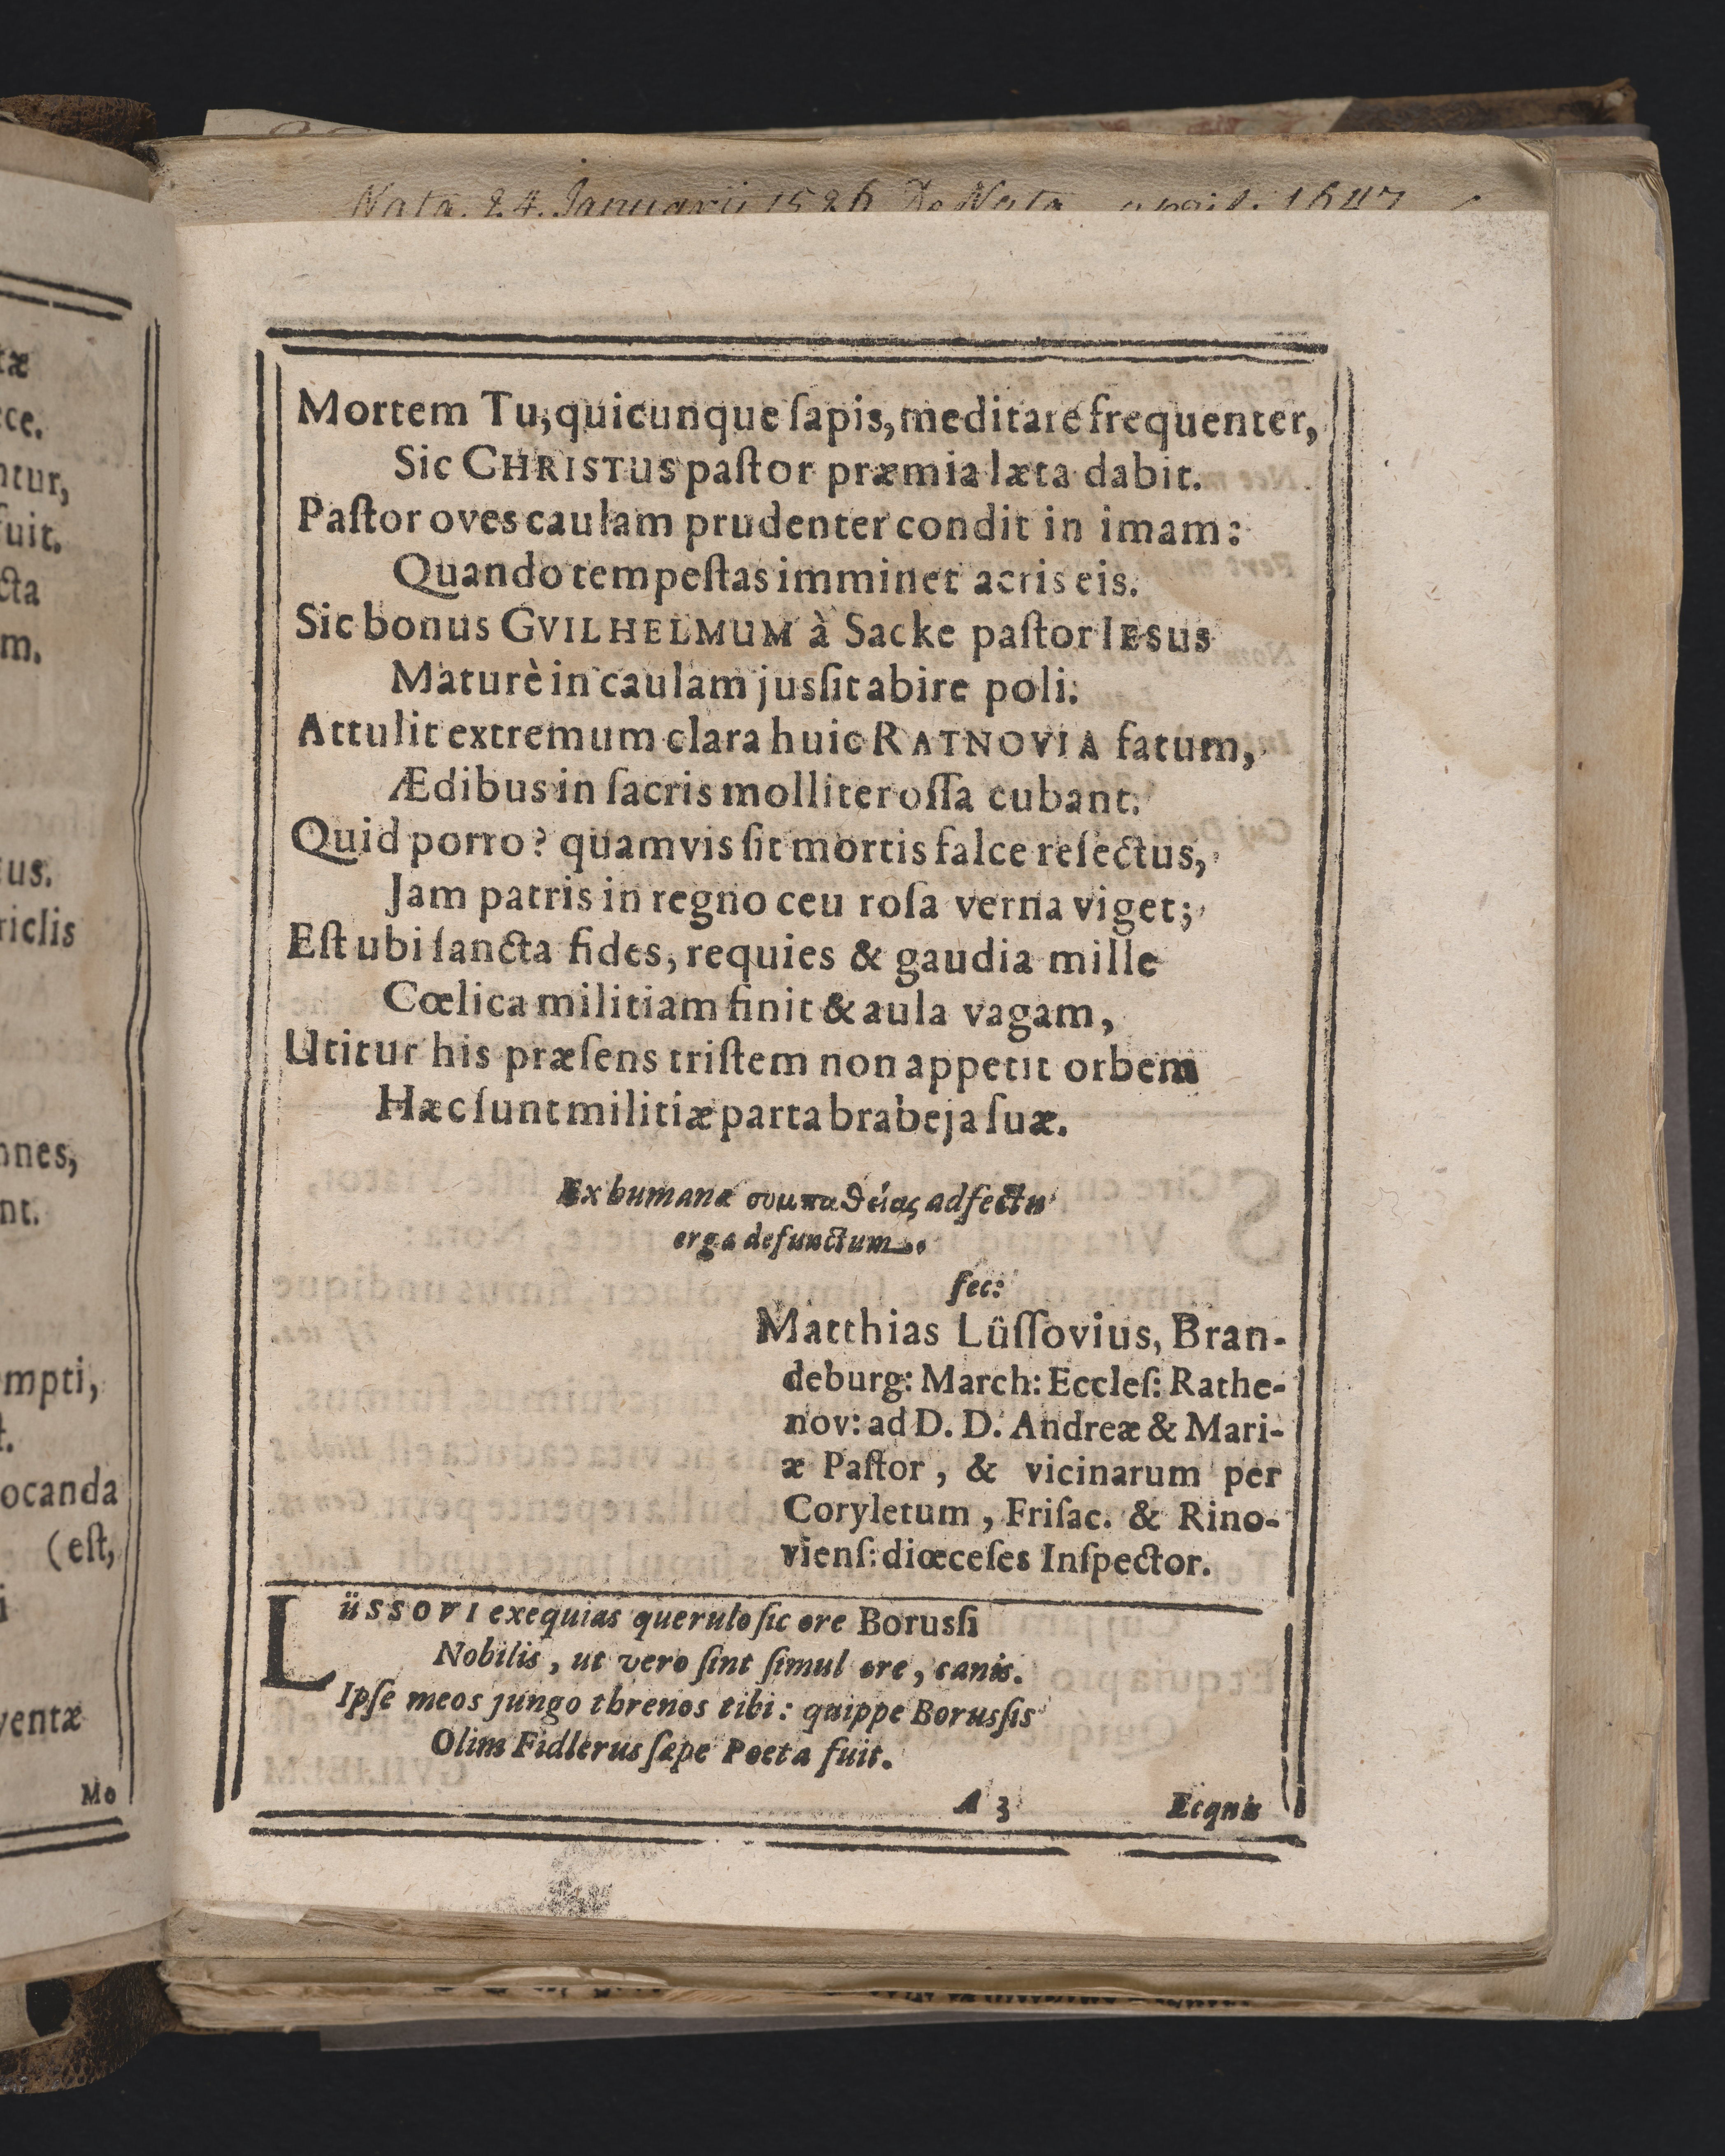 Nata. 24. Januarii 1526 De Nata april. 1647
tæ
ce.
ntur,
fuit.
cta
m.
tus.
riclis
nnes,
nt.
mpti,
t.
ocanda
(est,
i
ventæ
Mo
Mortem Tu, quicunque ſapis, meditare frequenter,
Sic CHRISTUS paſtor præmia læta dabit.
Paſtor oves caulam prudenter condit in imam:
Quando tempeſtas imminet acris eis.
Sic bonus GVILHELMUM à Sacke paſtor IESUS
Maturè in caulam jusſit abire poli.
Attulit extremum clara huic RATNOVIA fatum,
Ædibus in ſacris molliter oſſa cubant.
Quid porro? quamvis ſit mortis falce reſectus,
Jam patris in regno ceu roſa verna viget;
Eſt ubi ſancta fides, requies & gaudia mille
Cœlica militiam finit & aula vagam,
Utitur his præſens triſtem non appetit orbem
Hæc ſunt militiæ parta brabeja ſuæ.
Ex humanæ συμπαθείας adfectu
erga defunctum.
fec:
Matthias Lüſſovius, Bran-
deburg: March: Eccleſ: Rathe-
nov: ad D. D. Andreæ & Mari-
æ Paſtor, & vicinarum per
Coryletum, Friſac. & Rino-
vienſ: diœceſes Inſpector.
LüSSOVI exequias querulo ſic ore Borusſi
Nobilis, ut vero ſint ſimul ore, canis.
Ipſe meos jungo threnos tibi: quippe Borusſis
Olim Fidlerus ſæpe Poeta fuit.
A 3 Ecquis